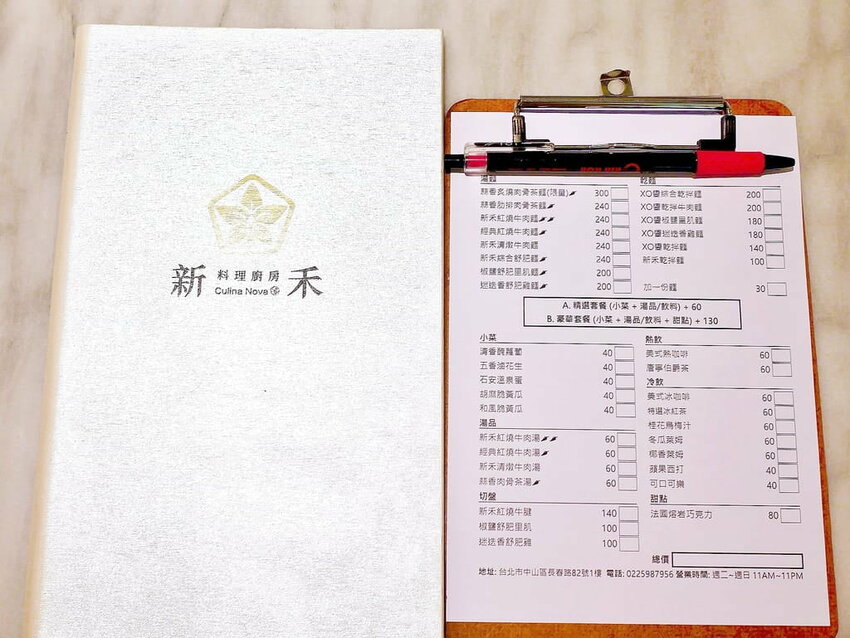 新 料理廚房 禾
Culina Nova
湯麵
蒜香炙燒肉骨茶麵(限量) 300
蒜香肋排肉骨茶麵 240
新禾紅燒牛肉麵 240
經典紅燒牛肉麵 240
新禾清燉牛肉麵 240
新禾綜合舒肥麵 240
椒鹽舒肥里肌麵 200
迷迭香舒肥雞麵 200
乾麵
XO醬綜合乾拌麵 200
XO醬乾拌牛肉麵 200
XO醬椒鹽里肌麵 180
XO醬迷迭香雞麵 180
XO醬乾拌麵 140
新禾乾拌麵 100
加一份麵 30
A. 精選套餐 (小菜 + 湯品/飲料) + 60
B. 豪華套餐 (小菜 + 湯品/飲料 + 甜點) + 130
小菜
清香醃蘿蔔 40
五香滷花生 40
石安溫泉蛋 40
胡麻脆黃瓜 40
和風脆黃瓜 40
湯品
新禾紅燒牛肉湯 60
經典紅燒牛肉湯 60
新禾清燉牛肉湯 60
蒜香肉骨茶湯 60
切盤
新禾紅燒牛腱 140
椒鹽舒肥里肌 100
迷迭香舒肥雞 100
熱飲
美式熱咖啡 60
唐寧伯爵茶 60
冷飲
美式冰咖啡 60
特選冰紅茶 60
桂花烏梅汁 60
冬瓜萊姆 60
椰香萊姆 60
蘋果西打 40
可口可樂 40
甜點
法國熔岩巧克力 80
總價
地址: 台北市中山區長春路82號1樓 電話: 0225987956 營業時間: 週二~週日 11AM~11PM